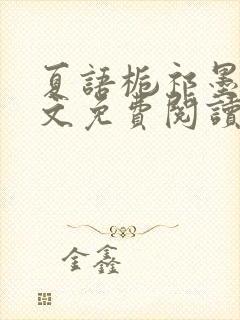 夏語梔祁墨
文免費閱讀
金鑫